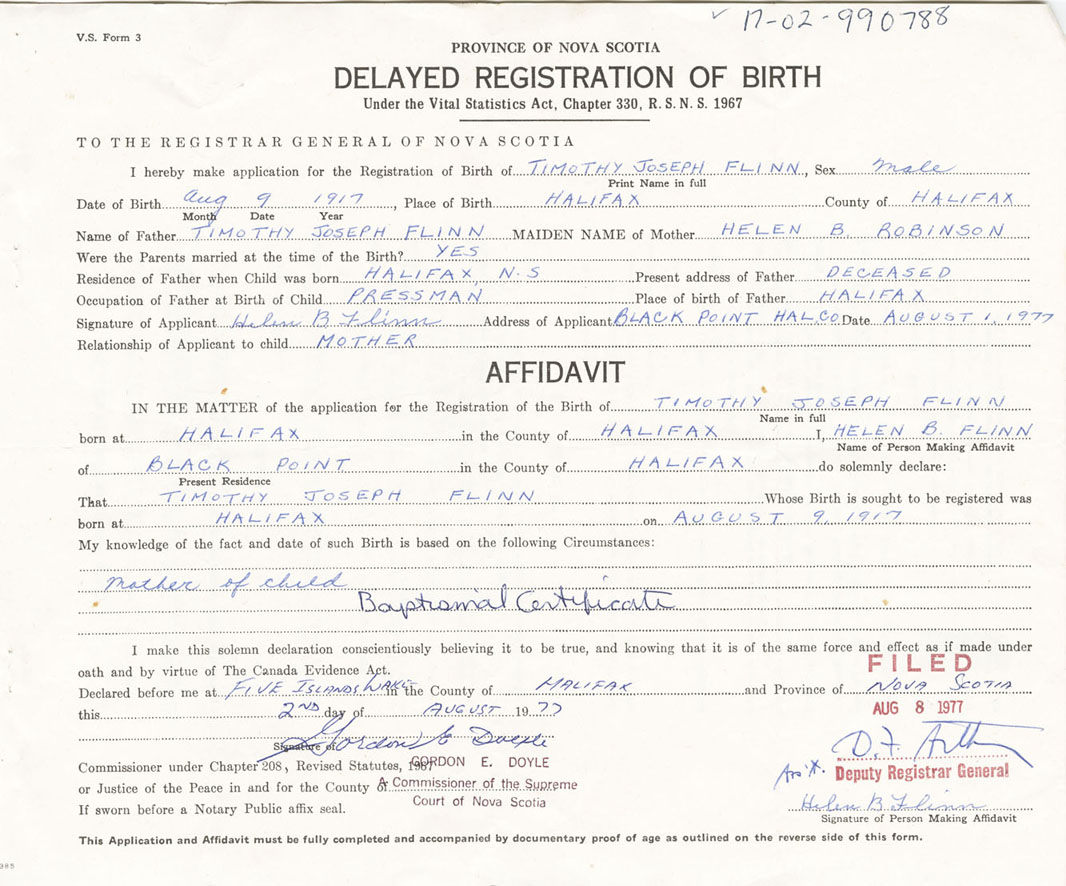 ✓ 17-02-990788
V.S. Form 3
PROVINCE OF NOVA SCOTIA
DELAYED REGISTRATION OF BIRTH
Under the Vital Statistics Act, Chapter 330, R.S.N.S. 1967
TO THE REGISTRAR GENERAL OF NOVA SCOTIA
I hereby make application for the Registration of Birth of TIMOTHY JOSEPH FLINN, Sex Male
Print Name in full
Date of Birth Aug 9 1917, Place of Birth HALIFAX County of HALIFAX
Month Date Year
Name of Father TIMOTHY JOSEPH FLINN MAIDEN NAME of Mother HELEN B. ROBINSON
Were the Parents married at the time of the Birth? YES
Residence of Father when Child was born HALIFAX N.S Present address of Father DECEASED
Occupation of Father at Birth of Child PRESSMAN Place of birth of Father HALIFAX
Signature of Applicant Helen B Flinn Address of Applicant BLACK POINT HAL.CO Date AUGUST 1, 1977
Relationship of Applicant to child MOTHER
AFFIDAVIT
IN THE MATTER of the application for the Registration of the Birth of TIMOTHY JOSEPH FLINN
Name in full
born at HALIFAX in the County of HALIFAX I, HELEN B. FLINN
Name of Person Making Affidavit
of BLACK POINT in the County of HALIFAX do solemnly declare:
Present Residence
That TIMOTHY JOSEPH FLINN Whose Birth is sought to be registered was
born at HALIFAX on AUGUST 9, 1917
My knowledge of the fact and date of such Birth is based on the following Circumstances:
Mother of child
Baptismal Certificate
I make this solemn declaration conscientiously believing it to be true, and knowing that it is of the same force and effect as if made under
oath and by virtue of The Canada Evidence Act.
FILED
Declared before me at FIVE ISLANDS LAKE in the County of HALIFAX and Province of NOVA SCOTIA
this 2ND day of AUGUST 1977
AUG 8 1977
Signature of Gordon E Doyle
D.F.
Commissioner under Chapter 208, Revised Statutes, 1967 GORDON E. DOYLE
Ass't. Deputy Registrar General
or Justice of the Peace in and for the County of A Commissioner of the Supreme
Court of Nova Scotia
Helen B Flinn
If sworn before a Notary Public affix seal.
Signature of Person Making Affidavit
This Application and Affidavit must be fully completed and accompanied by documentary proof of age as outlined on the reverse side of this form.
985